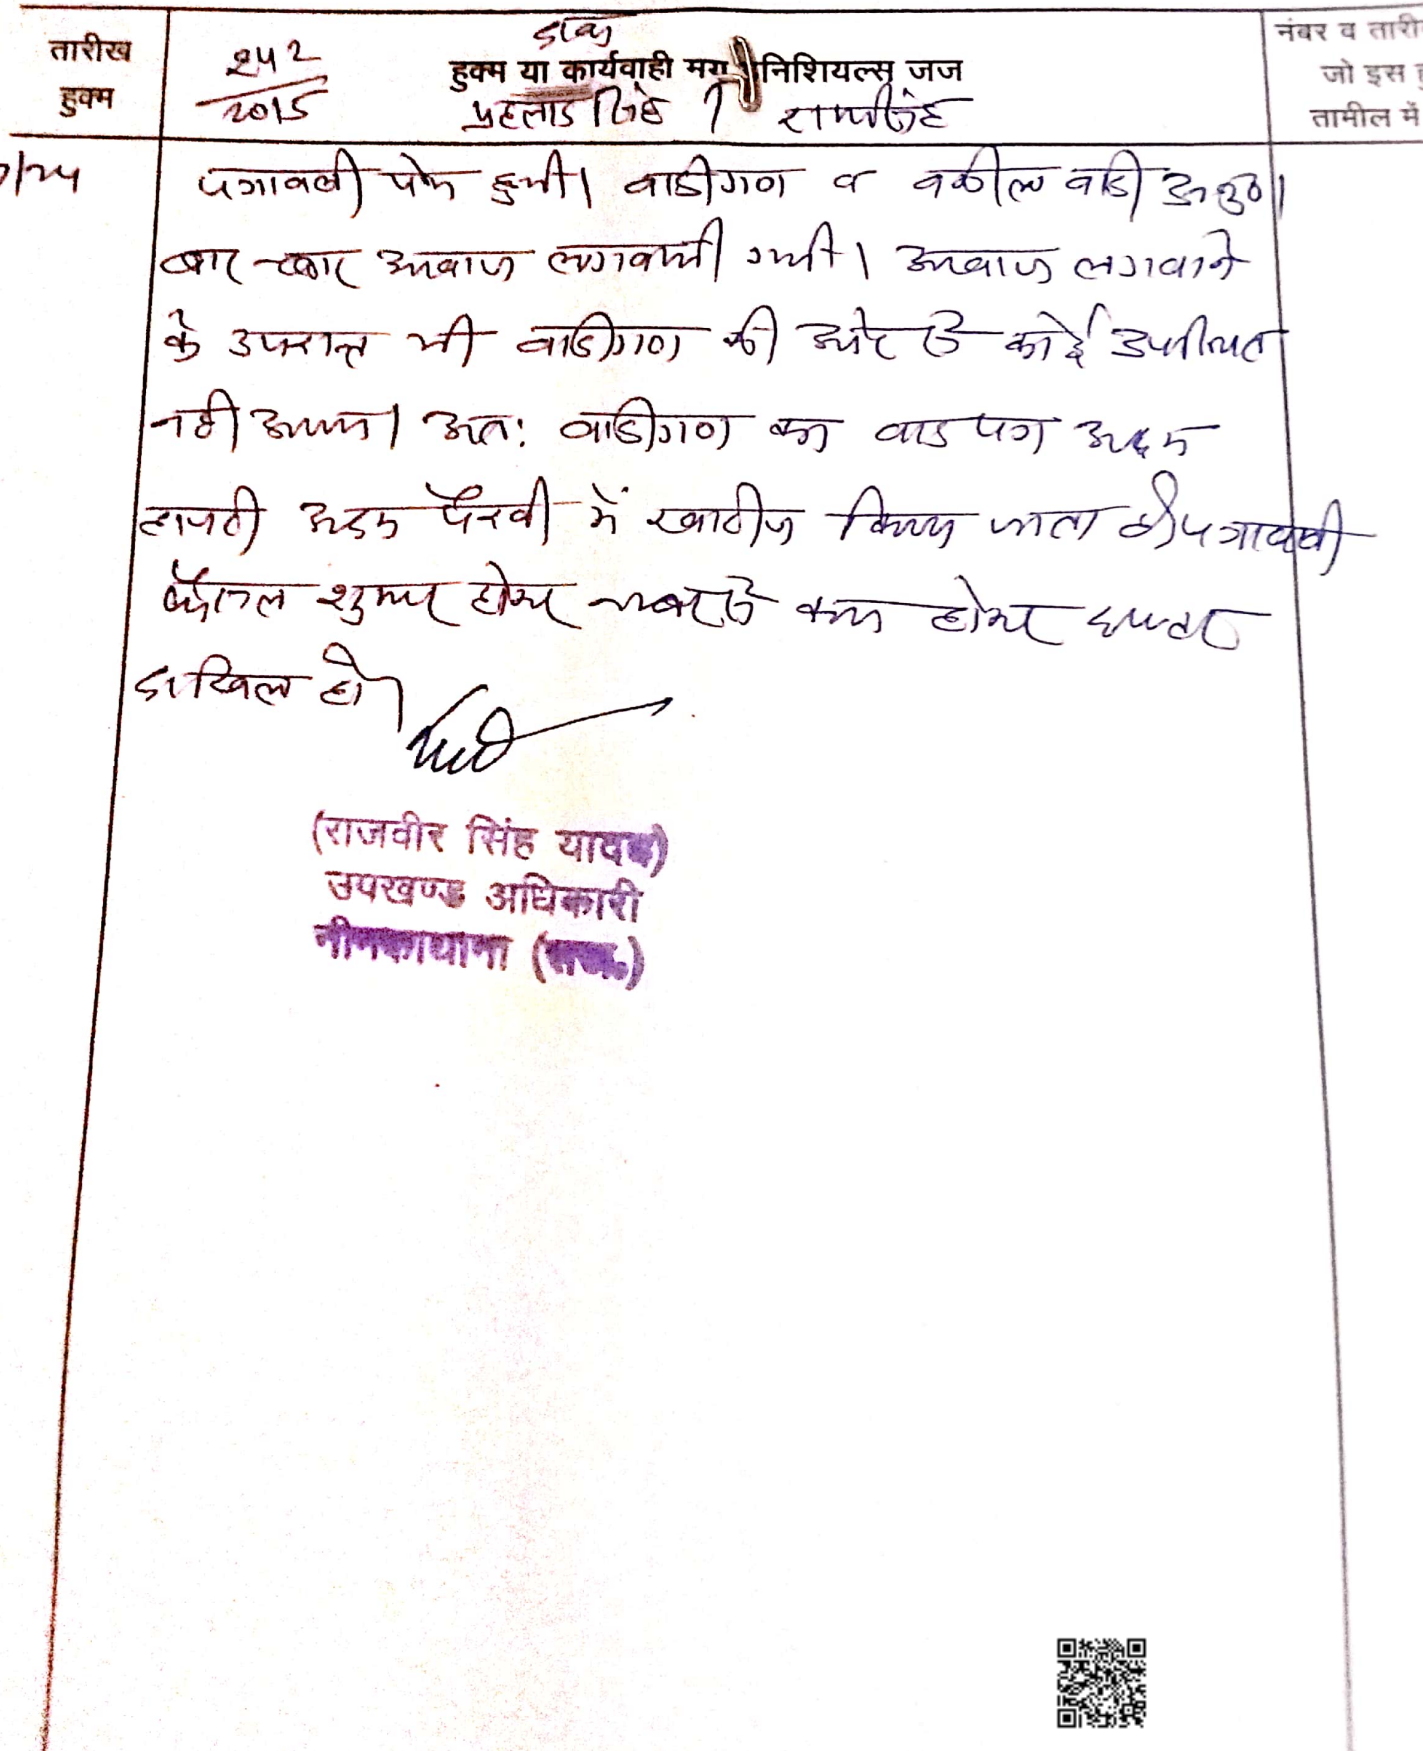 तारीख
हुक्म
242
2015
हुक्म या कार्यवाही मय इनिशियल्स जज
प्रहलाद सिंह
नंबर व तारी
जो इस
तामील में
पत्रावली पेश हुयी। वादीगण व वकील वादी अनु0।
बार-बार आवाज लगवायी गयी। आवाज लगवाने
के उपरान्त भी वादीगण की ओर से कोई उपस्थित
नही आया। अतः वादीगण का वाद पत्र अदम
हाजरी अदम पैरवी में खारीज किया जाता है। पत्रावली
फैसल शुमार होकर नम्बर से कम होकर दफ्तर
दाखिल हो।
(राजवीर सिंह यादव)
उपखण्ड अधिकारी
नीमकाथाना (राज.)